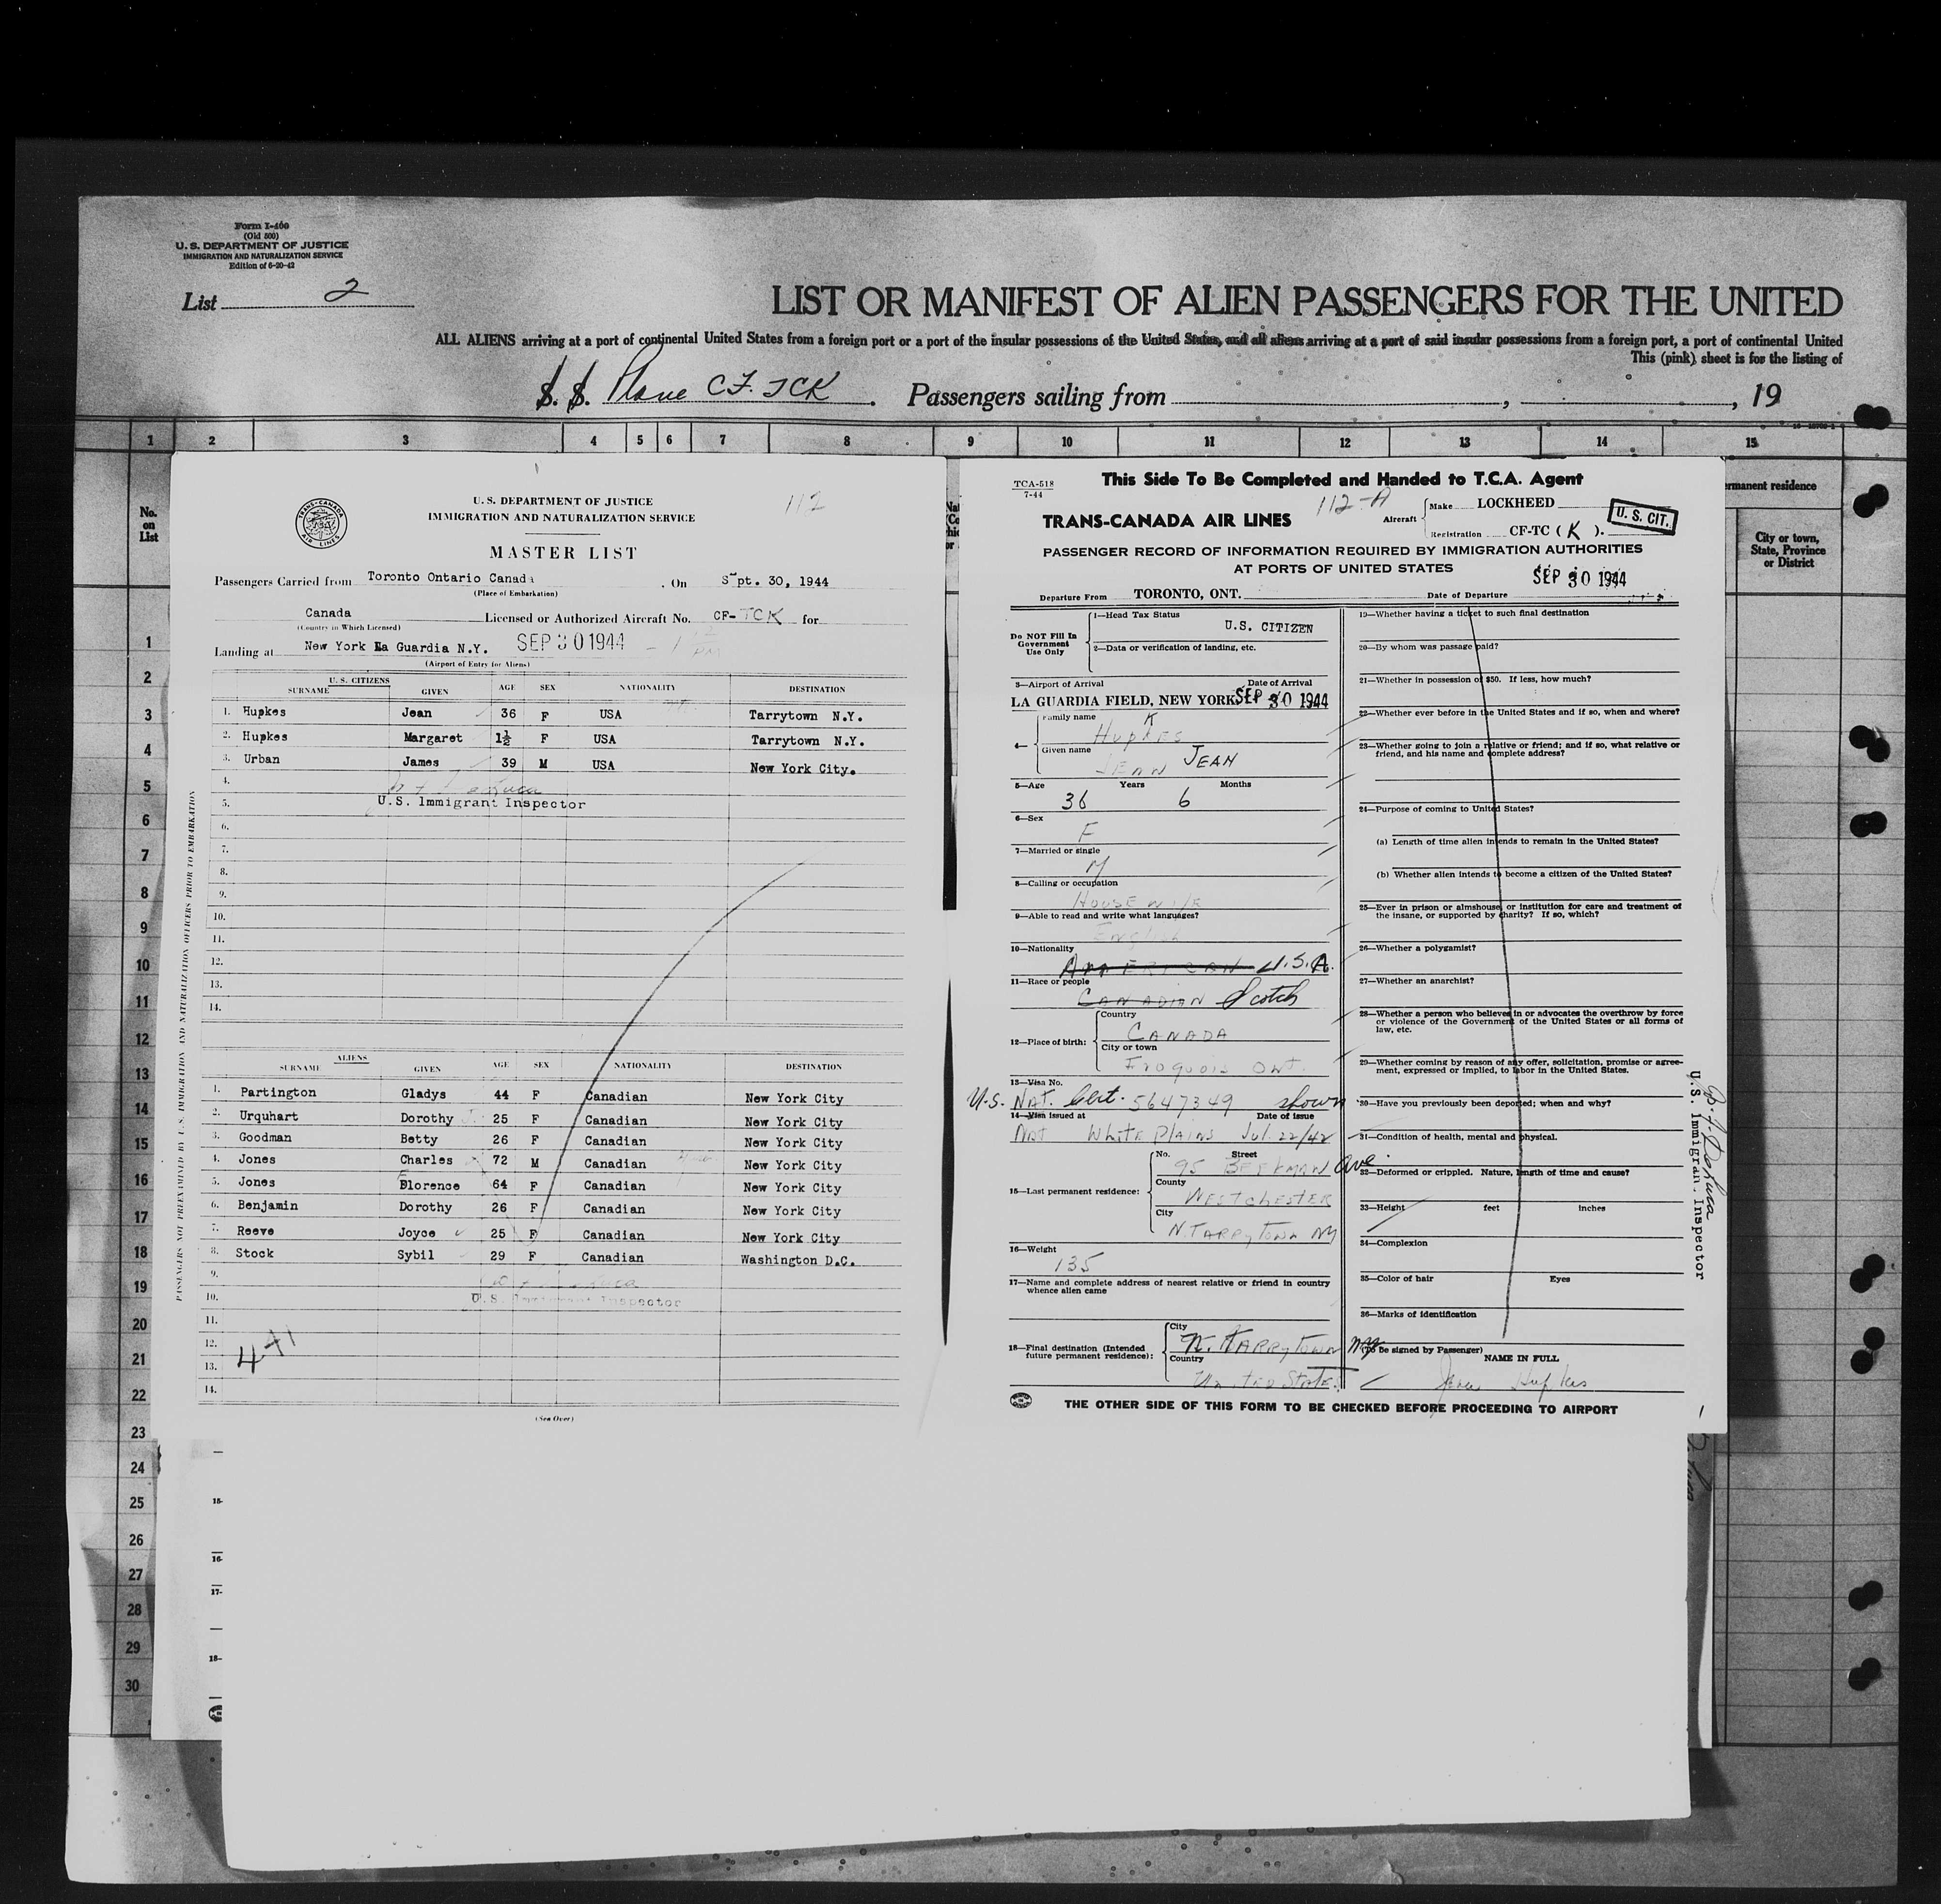 Form I-400
(Old 500)
U. S. DEPARTMENT OF JUSTICE
IMMIGRATION AND NATURALIZATION SERVICE
Edition of 6-20-42
List 2
LIST OR MANIFEST OF ALIEN PASSENGERS FOR THE UNITED
ALL ALIENS arriving at a port of continental United States from a foreign port or a port of the insular possessions of the United States, and all aliens arriving at a port of said insular possessions from a foreign port, a port of continental United
This (pink) sheet is for the listing of
S. S. Plane CF. TCK . Passengers sailing from , , 19
1 2 3 4 5 6 7 8 9 10 11 12 13 14 15
No. on List
rmanent residence
City or town, State, Province or District
1
2
3
4
5
6
7
8
9
10
11
12
13
14
15
16
17
18
19
20
21
22
23
24
25
26
27
28
29
30
TRANS-CANADA AIR LINES
U. S. DEPARTMENT OF JUSTICE
IMMIGRATION AND NATURALIZATION SERVICE
112
MASTER LIST
Passengers Carried from Toronto Ontario Canada . On S pt. 30, 1944
(Place of Embarkation)
Canada Licensed or Authorized Aircraft No. CF- TCK for
(Country in Which Licensed)
Landing at New York La Guardia N.Y. SEP 30 1944 PM
(Airport of Entry for Aliens)
U. S. CITIZENS
SURNAME GIVEN AGE SEX NATIONALITY DESTINATION
1. Hupkes Jean 36 F USA Tarrytown N.Y.
2. Hupkes Margaret 1½ F USA Tarrytown N.Y.
3. Urban James 39 M USA New York City.
4.
5. U.S. Immigrant Inspector
6.
7.
8.
9.
10.
11.
12.
13.
14.
ALIENS
SURNAME GIVEN AGE SEX NATIONALITY DESTINATION
1. Partington Gladys 44 F Canadian New York City
2. Urquhart Dorothy J. 25 F Canadian New York City
3. Goodman Betty 26 F Canadian New York City
4. Jones Charles 72 M Canadian New York City
5. Jones Florence 64 F Canadian New York City
6. Benjamin Dorothy 26 F Canadian New York City
7. Reeve Joyce 25 F Canadian New York City
8. Stock Sybil 29 F Canadian Washington D.C.
9.
10. U.S. Immigrant Inspector
11.
12.
13.
14.
4+1
(See Over)
PASSENGERS NOT PREEXAMINED BY U.S. IMMIGRATION AND NATURALIZATION OFFICERS PRIOR TO EMBARKATION
15-
16-
17-
18-
TCA-518
7-44
This Side To Be Completed and Handed to T.C.A. Agent
112-A
TRANS-CANADA AIR LINES
Aircraft Make LOCKHEED
Registration CF-TC ( K ).
U. S. CIT.
PASSENGER RECORD OF INFORMATION REQUIRED BY IMMIGRATION AUTHORITIES
AT PORTS OF UNITED STATES
SEP 30 1944
Departure From TORONTO, ONT. Date of Departure
Do NOT Fill In Government Use Only
1—Head Tax Status
U.S. CITIZEN
2—Data or verification of landing, etc.
3—Airport of Arrival Date of Arrival
LA GUARDIA FIELD, NEW YORK SEP 30 1944
4—
Family name
K
HupKES
Given name
JEAN JEAN
5—Age Years Months
36 6
6—Sex
F
7—Married or single
M
8—Calling or occupation
HOUSE WIFE
9—Able to read and write what languages?
English
10—Nationality
AMERICAN U.S.A.
11—Race or people
CANADIAN Scotch
12—Place of birth:
Country
CANADA
City or town
Iroquois Ont.
13—Visa No.
U.S. NAT. Cert. 5647349 shown
14—Visa issued at Date of issue
Nat White Plains Jul. 22/42
15—Last permanent residence:
No. Street
95 BEEKMAN Ave.
County
WESTCHESTER
City
N. TARRYTOWN NY
16—Weight
135
17—Name and complete address of nearest relative or friend in country whence alien came
18—Final destination (Intended future permanent residence):
City
N. TARRYTOWN NY
Country
United States
19—Whether having a ticket to such final destination
20—By whom was passage paid?
21—Whether in possession of $50. If less, how much?
22—Whether ever before in the United States and if so, when and where?
23—Whether going to join a relative or friend; and if so, what relative or friend, and his name and complete address?
24—Purpose of coming to United States?
(a) Length of time alien intends to remain in the United States?
(b) Whether alien intends to become a citizen of the United States?
25—Ever in prison or almshouse, or institution for care and treatment of the insane, or supported by charity? If so, which?
26—Whether a polygamist?
27—Whether an anarchist?
28—Whether a person who believes in or advocates the overthrow by force or violence of the Government of the United States or all forms of law, etc.
29—Whether coming by reason of any offer, solicitation, promise or agreement, expressed or implied, to labor in the United States.
30—Have you previously been deported; when and why?
31—Condition of health, mental and physical.
32—Deformed or crippled. Nature, length of time and cause?
33—Height feet inches
34—Complexion
35—Color of hair Eyes
36—Marks of identification
(To be signed by Passenger)
NAME IN FULL
Jean Hupkes
THE OTHER SIDE OF THIS FORM TO BE CHECKED BEFORE PROCEEDING TO AIRPORT
U.S. Immigrant Inspector